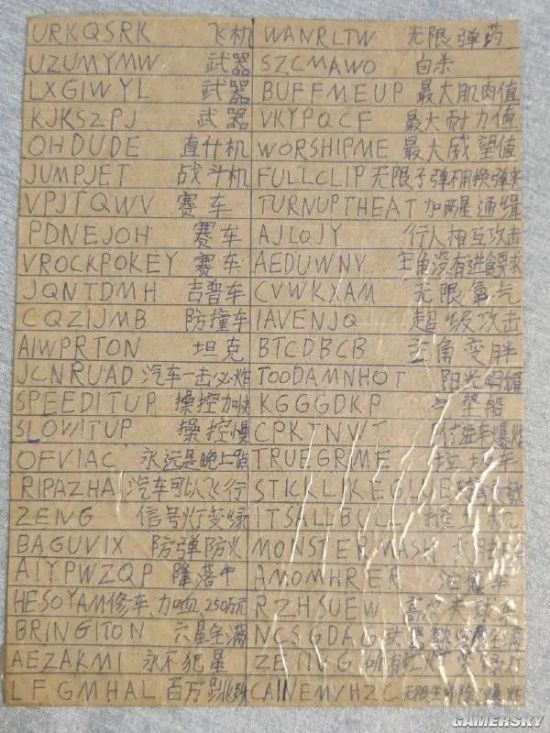 URKQSRK 飞机 WANRLTW 无限弹药
UZUMYMW 武器 SZCMAWO 自杀
LXGIWYL 武器 BUFFMEUP 最大肌肉值
KJKSZPJ 武器 VKYPQCF 最大耐力值
OHDUDE 直升机 WORSHIPME 最大威望值
JUMPJET 战斗机 FULLCLIP 无限子弹不用换弹夹
VPJTQWV 赛车 TURNUPTHEAT 加两星通缉
PDNEJOH 赛车 AJLOJY 行人相互攻击
VROCKPOKEY 赛车 AEDUWNV 主角没有进食要求
JQNTDMH 吉普车 CVWKXAM 无限氧气
CQZIJMB 防撞车 IAVENJQ 超级攻击
AIWPRTON 坦克 BTCDBCB 主角变胖
JCNRUAD 汽车一击必炸 TOODAMNHOT 阳光明媚
SPEEDITUP 操控加快 KGGGDKP 气垫船
SLOWITUP 操控慢 CPKTNWT 所有汽车爆炸
OFVIAC 永远是晚上 TRUEGRIME 垃圾车
RIPAZHA 汽车可以飞行 STICKLIKEGLUE
ZEIVG 信号灯变绿 ITSALLBULL 推土机
BAGUVIX 防弹防火 MONSTERMASH
AIYPWZQP 降落伞 AMOMHRER
HESOYAM 修车 加血 250万元 RZHSUEW
BRINGITON 六星全满 NCSGDAG
AEZAKMI 永不犯星 ZEIIVG
LFGMHAL 百万跳 CAINEMVHZC
GAMERSKY